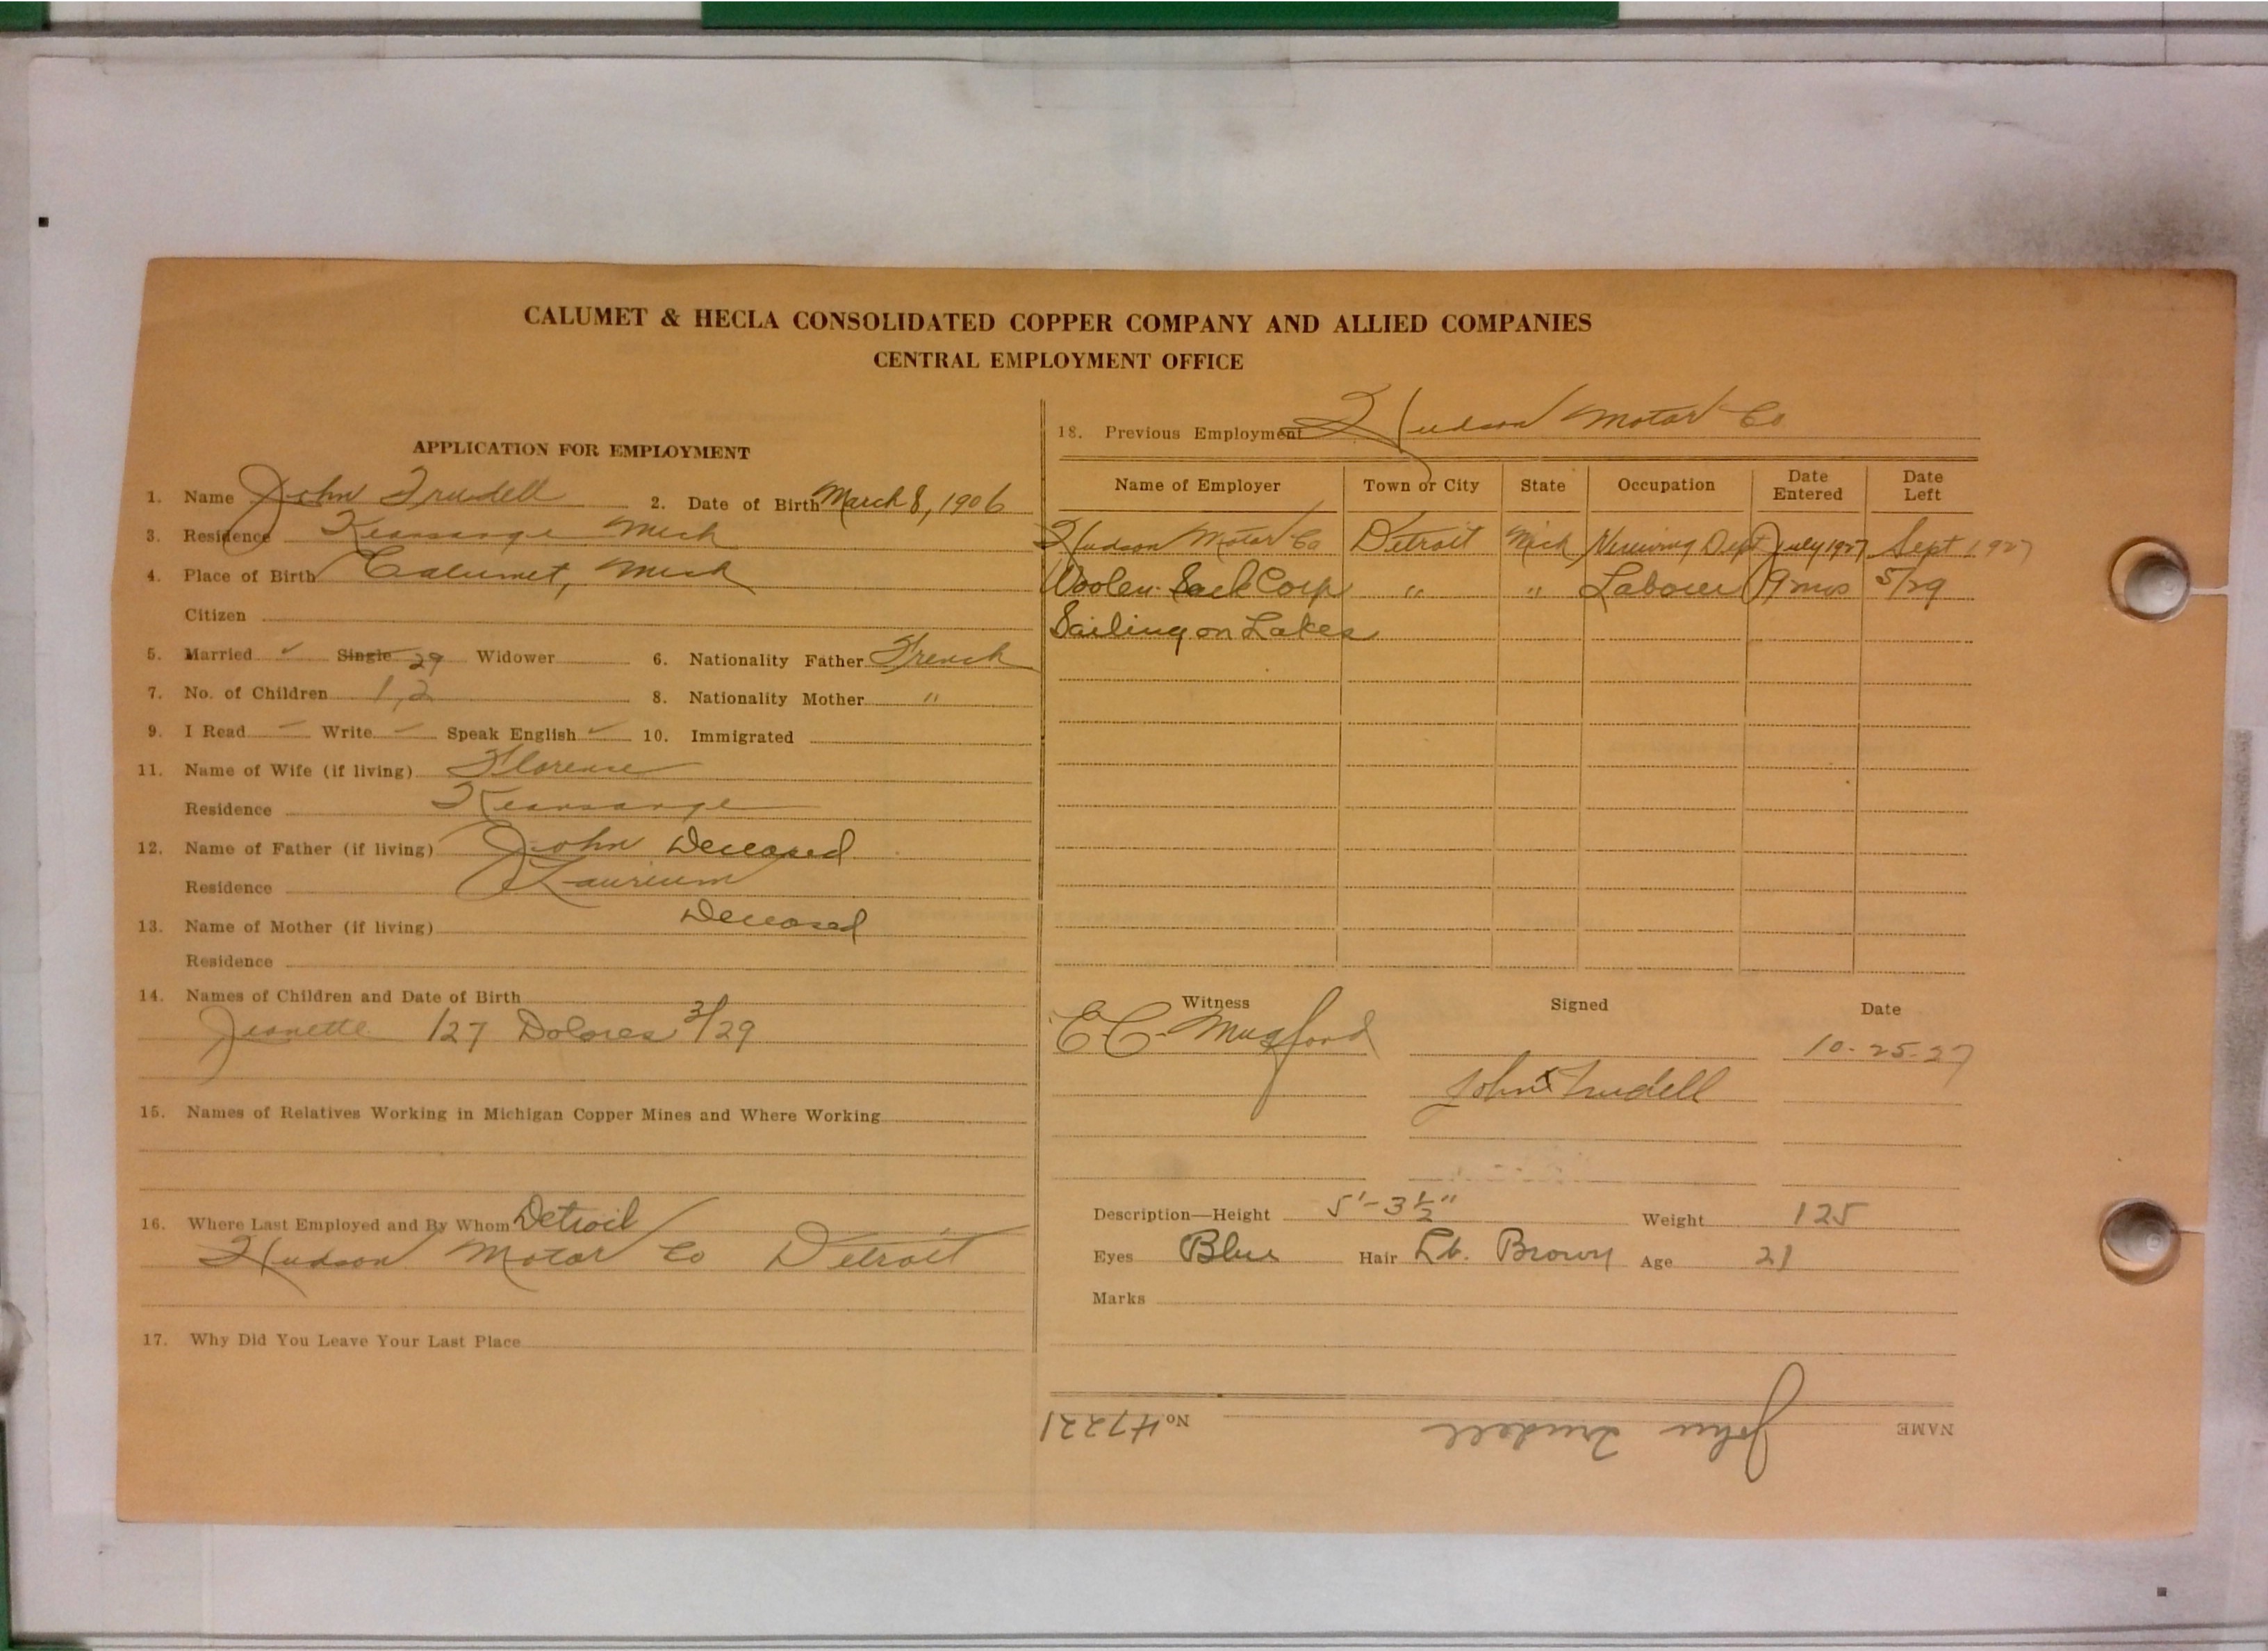 CALUMET & HECLA CONSOLIDATED COPPER COMPANY AND ALLIED COMPANIES
CENTRAL EMPLOYMENT OFFICE
APPLICATION FOR EMPLOYMENT
1. Name John Trudell 2. Date of Birth March 8, 1906
3. Residence Kearsarge Mich
4. Place of Birth Calumet, Mich
Citizen
5. Married ✓ Single 29 Widower 6. Nationality Father French
7. No. of Children 1, 2 8. Nationality Mother "
9. I Read ✓ Write ✓ Speak English ✓ 10. Immigrated
11. Name of Wife (if living) Florence
Residence Kearsarge
12. Name of Father (if living) John Deceased
Residence Laurium
13. Name of Mother (if living) Deceased
Residence
14. Names of Children and Date of Birth
Jeanette /27 Dolores 3/29
15. Names of Relatives Working in Michigan Copper Mines and Where Working
16. Where Last Employed and By Whom Detroit
Hudson Motor Co Detroit
17. Why Did You Leave Your Last Place
18. Previous Employment Hudson Motor Co
Name of Employer Town or City State Occupation Date Entered Date Left
Hudson Motor Co Detroit Mich Dept July 1927 Sept 1927
Woolen Corp " " Laborer 9 mos 5/29
Sailing on Lakes
Witness Signed Date
E C Mugford 10-25-27
John x Trudell
Description—Height 5'-3 1/2" Weight 125
Eyes Blue Hair Lt. Brown Age 21
Marks
NAME John Trudell No. H7221